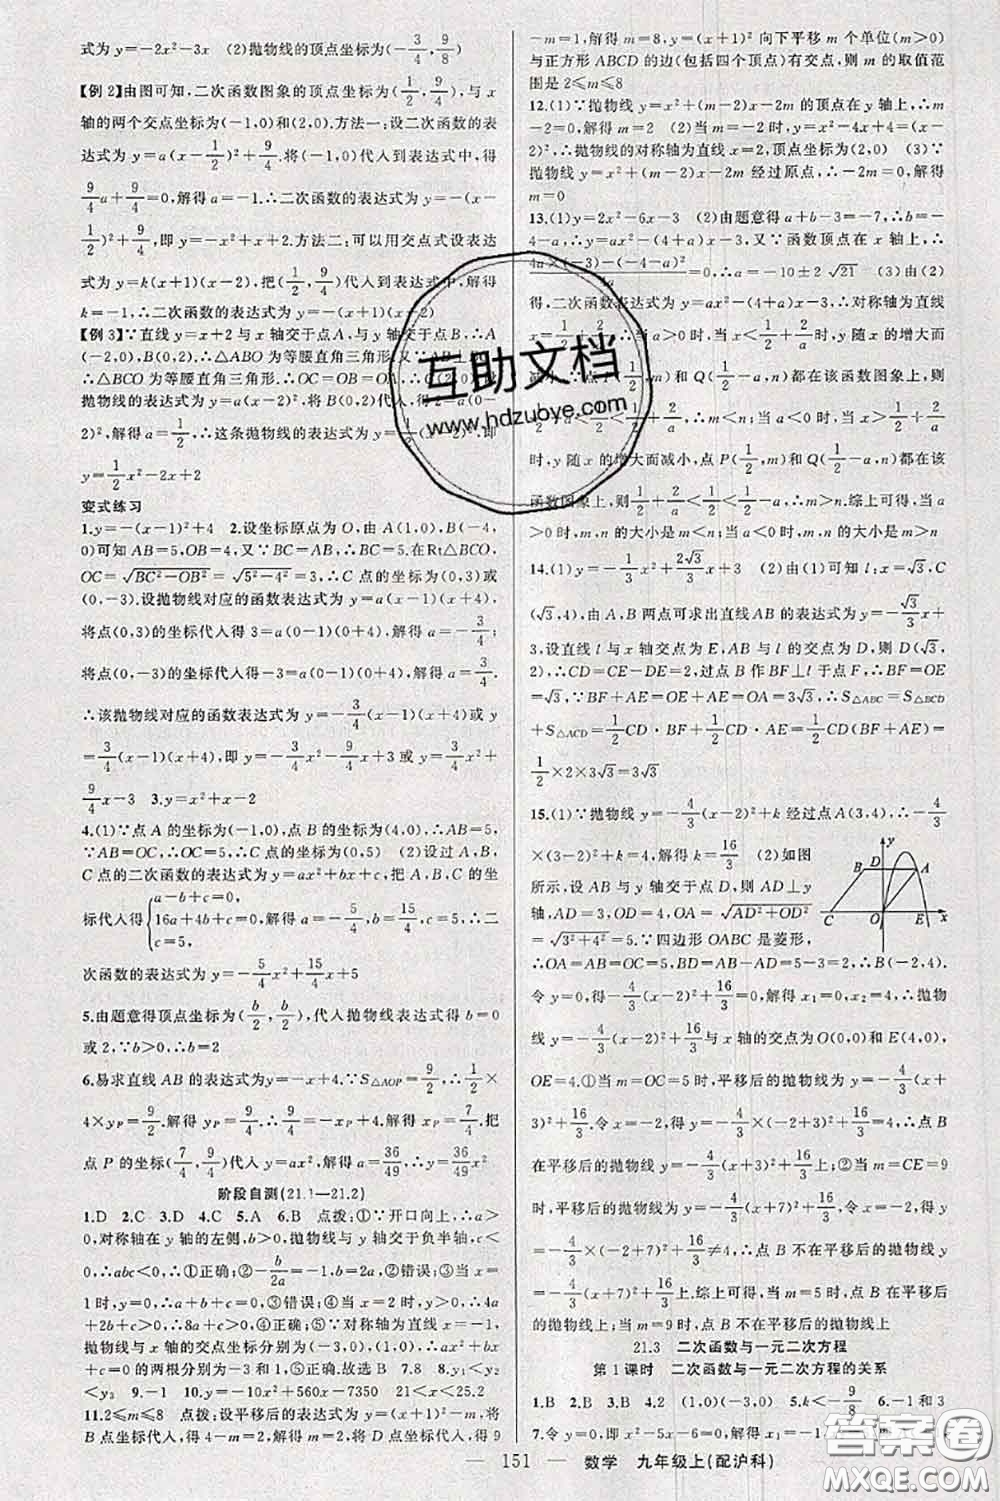 式为 y=-2x²-3x (2)抛物线的顶点坐标为(-3/4,9/8)
【例2】由图可知,二次函数图象的顶点坐标为(1/2,9/4),与 x
轴的两个交点坐标为(-1,0)和(2,0).方法一:设二次函数的表
达式为 y=a(x-1/2)²+9/4.将(-1,0)代入到表达式中,得
9/4a+9/4=0,解得 a=-1.∴二次函数的表达式为 y=-(x-
1/2)²+9/4,即 y=-x²+x+2.方法二:可以用交点式设表达
式为 y=k(x+1)(x-2),把(1/2,9/4)代入到表达式中,解得
k=-1,∴二次函数的表达式为 y=-(x+1)(x-2)
【例3】∵直线 y=x+2 与 x 轴交于点 A,与 y 轴交于点 B,∴A
(-2,0),B(0,2).∴△ABO 为等腰直角三角形.
∴△BCO 为等腰直角三角形.∴OC=OB=OA
抛物线的表达式为 y=a(x-2)²,将 B(0,2)代入,得 2=a(0-
2)²,解得 a=1/2,∴这条抛物线的表达式为 y=1/2(x-2)²,即
y=1/2x²-2x+2
变式练习
1.y=-(x-1)²+4 2.设坐标原点为 O,由 A(1,0),B(-4,
0)可知 AB=5,OB=4,又∵BC=AB,∴BC=5.在 Rt△BCO,
OC=√BC²-OB²=√5²-4²=3,∴C 点的坐标为(0,3)或(0,
-3).设抛物线对应的函数表达式为 y=a(x-1)(x+4),
将点(0,3)的坐标代入得 3=a(0-1)(0+4),解得 a=-3/4;
将点(0,-3)的坐标代入得-3=a(0-1)(0+4),解得 a=3/4,
∴该抛物线对应的函数表达式为 y=-3/4(x-1)(x+4)或 y
=3/4(x-1)(x+4),即 y=-3/4x²-9/4x+3 或 y=3/4x²+
9/4x-3 3.y=x²+x-2
4.(1)∵点 A 的坐标为(-1,0),点 B 的坐标为(4,0),∴AB=5,
∵AB=OC,∴OC=5,∴C 点的坐标为(0,5) (2)设过 A,B,
C 点的二次函数的表达式为 y=ax²+bx+c,把 A,B,C 的坐
标代入得{a-b+c=0, 16a+4b+c=0, c=5, 解得 a=-5/4,b=15/4,c=5,∴二
次函数的表达式为 y=-5/4x²+15/4x+5
5.由题意得顶点坐标为(b/2,b/2),代入抛物线表达式得 b=0
或2,∵b>0,∴b=2
6.易求直线 AB 的表达式为 y=-x+4.∵S△AOP=9/2,∴1/2×
4×yP=9/2.解得 yP=9/4.∴9/4=-x+4.解得 x=7/4.把
点 P 的坐标(7/4,9/4)代入 y=ax²,解得 a=36/49,∴y=36/49x²
阶段自测(21.1—21.2)
1.D 2.C 3.D 4.C 5.A 6.B 点拨:①∵开口向上,∴a>
0,对称轴在 y 轴的左侧,b>0,抛物线与 y 轴交于负半轴,c<
0,∴abc<0,∴①正确;②-b/2a=-1,b=2a,②错误;③当 x=
1 时,y=0,∴a+b+c=0,③错误;④当 x=2 时,y>0,∴4a
+2b+c>0,④正确;⑤∵对称轴为直线 x=-1,∴
抛物线与 x 轴的交点坐标分别为(-3,0),(1,0),∴ax²+bx
+c=0 的两根分别为-3 和 1,⑤正确.故选B 7.8 8.y₁<y₂
<y₃ 9.-1 10.y=-10x²+560x-7350 21<x<25.2
11.2≤m≤8 点拨:设平移后的表达式为 y=(x+1)²-m,将
B 点坐标代入,得 4-m=2,解得 m=2,将 D 点坐标代入,得 9
-m=1,解得 m=8,y=(x+1)² 向下平移 m 个单位(m>0)
与正方形 ABCD 的边(包括四个顶点)有交点,则 m 的取值范
围是 2≤m≤8
12.(1)∵抛物线 y=x²+(m-2)x-2m 的顶点在 y 轴上,∴m
-2=0,解得 m=2 (2)当 m=-2 时,y=x²-4x+4=(x-
2)²,∴抛物线的对称轴为直线 x=2,顶点坐标为(2,0) (3)∵
抛物线 y=x²+(m-2)x-2m 经过原点,∴-2m=0,解得
m=0
13.(1)y=2x²-6x-3 (2)由题意得 a+b-3=-7,∴b=
-4-a,∴y=ax²-(4+a)x-3,又∵函数顶点在 x 轴上,∴
4a×(-3)-(-4-a)²/4a=0,∴a=-10±2√21 (3)由(2)
得,二次函数表达式为 y=ax²-(a+4)x-3,∴对称轴为直线
x=1/2+2/a,∴当 a>0 时,当 x<1/2+2/a 时,y 随 x 的增大而
m)和 Q(1/2-a,n)都在该函数图象上,则
m<n;当 a<0 时,当 x>1/2+2/a
时,y 随 x 的增大而减小,点 P(1/2,m)和 Q(1/2-a,n)都在该
函数图象上,则 m>n.综上可得,当 a
>0 时,m,n 的大小是 m<n;当 a<0 时,m,n 的大小是 m>n
14.(1)y=-1/3x²+2√3/3x+3 (2)由(1)可知 l:x=√3,C
(√3,4),由 A,B 两点可求出直线 AB 的表达式为 y=-√3/3x+
3,设直线 l 与 x 轴的交点为 E,AB 与 l 的交点为 D,则 D(√3,
2),∴CD=CE-DE=2,过点 B 作 BF⊥l 于点 F,∴BF=OE
=√3.∵BF+AE=OE+AE=OA=3√3,∴S△ABC=S△BCD
+S△ACD=1/2CD·BF+1/2CD·AE=1/2CD(BF+AE)=
1/2×2×3√3=3√3
15.(1)∵抛物线 y=-4/3(x-2)²+k 经过点 A(3,4),∴-4/3
×(3-2)²+k=4,解得 k=16/3 (2)如图
所示,设 AB 与 y 轴交于点 D,则 AD⊥y
轴,AD=3,OD=4,OA=√AD²+OD²
=√3²+4²=5.∵四边形 OABC 是菱形,
∴OA=AB=OC=5,BD=AB-AD=5-3=2,∴B(-2,4).
令 y=0,得-4/3(x-2)²+16/3=0,解得 x₁=0,x₂=4,∴抛物
线 y=-4/3(x-2)²+16/3与 x 轴的交点为 O(0,0)和 E(4,0),
OE=4.①当 m=OC=5 时,平移后的抛物线为 y=-4/3(x+
3)²+16/3,令 x=-2 得 y=-4/3(-2+3)²+16/3=4,∴点 B
在平移后的抛物线 y=-4/3(x+3)²+16/3上;②当 m=CE=9
时,平移后的抛物线为 y=-4/3(x+7)²+16/3,令 x=-2 得 y
=-4/3×(-2+7)²+16/3≠4,∴点 B 不在平移后的抛物线 y
=-4/3(x+7)²+16/3上.综上可得,当 m=5 时,点 B 在平移后
的抛物线上;当 m=9 时,点 B 不在平移后的抛物线上
y
B D A
C O E x
21.3 二次函数与一元二次方程
第1课时 二次函数与一元二次方程的关系
1.B 2.B 3.B 4.2 (1,0) (-3,0) 5.k<-9/8 6.-1 和 3
7.令 y=0,
151 数学 九年级上(配沪科)
互助文档
www.hdzuoye.com
答案圈
MXQE.COM